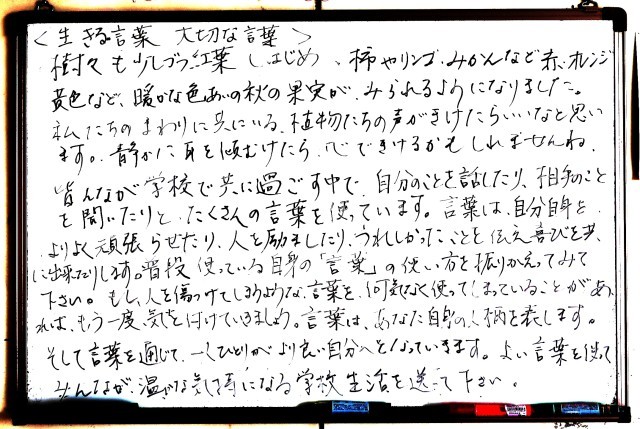 ＜生きる言葉 大切な言葉＞
樹々も少しづつ紅葉しはじめ、柿やリンゴ、みかんなど赤、オレンジ
黄色など、暖かな色あいの秋の果実が、みられるようになりました。
私たちのまわりに共にいる、植物たちの声がきけたらいいなと思い
ます。静かに耳を傾むけたら、心できけるかもしれませんね。
皆んなが学校で共に過ごす中で、自分のことを話したり、相手のこと
を聞いたりと、たくさんの言葉を使っています。言葉は、自分自身を
よりよく頑張らせたり、人を励ましたり、うれしかったことを伝え喜びを共
に出来たりします。普段使っている自身の「言葉」の使い方を振りかえってみて
下さい。もし、人を傷つけてしまうような言葉を、何気なく使ってしまっていることがあ
れば、もう一度、気を付けていきましょう。言葉は、あなた自身の人柄を表します。
そして言葉を通じて、一人ひとりがより良い自分へとなっていきます。よい言葉を使って
みんなが、温かな気持になる学校生活を送って下さい。